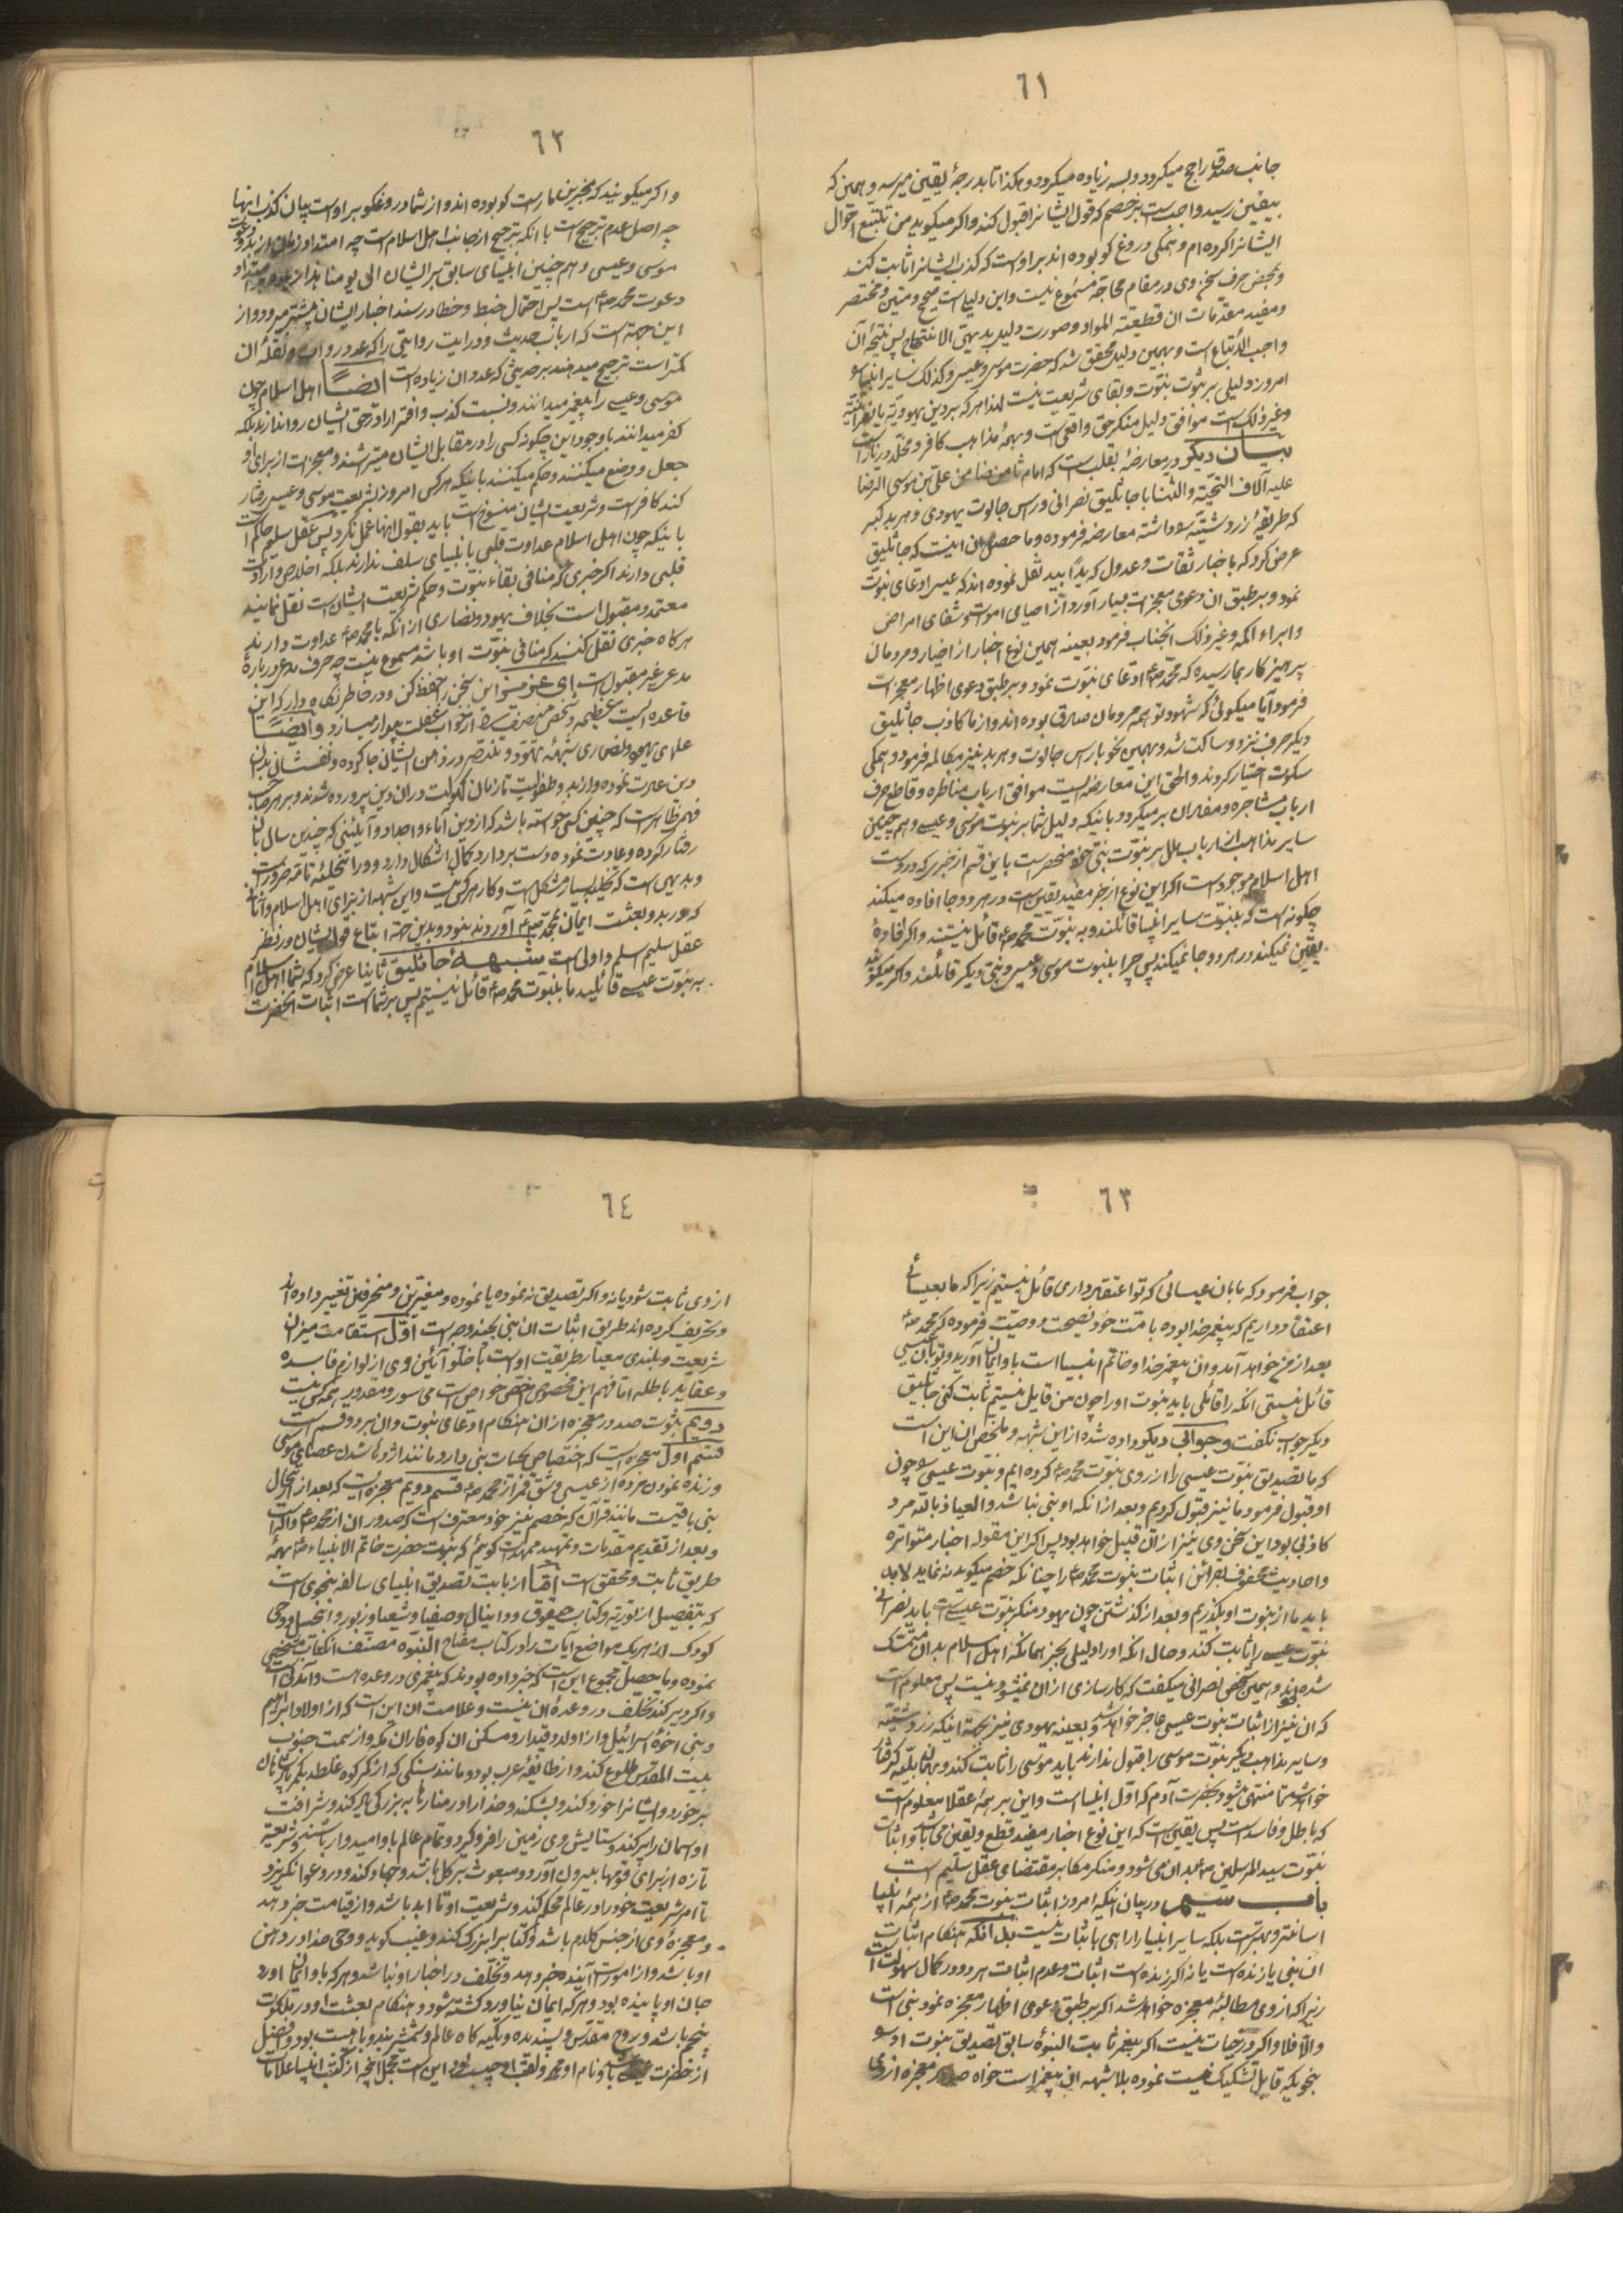 ٦١
جانب صدق راجح میکردد و لبسه زیاده میکردد و هکذا تا بدرجهٔ یقین میرسد و همین که
بیقین رسید واجبست بر خصم که قول ایشانرا قبول کند و اکر میکوید من تتبع احوال
ایشانرا کرده ام و همکی دروغ کو بوده اند بر اوست که کذب ایشانرا ثابت کند
و بمحض حرف سخن وی در مقام محاجه مسموع نیست و این دلیلیست صحیح و متین و مختصر
و مفید مقدمات ان قطعیّة المواد و صورت دلیل بدیهی الانتاج پس نتیجهٔ آن
واجب الاتباع است و بهمین دلیل محقق شد که حضرت موسی و عیسی و کذلک سایر انبیا
امروز دلیلی بر ثبوت نبوت و بقای شریعت نیست لهذا هر که بر دین یهودیّة یا نصرانیّة
و غیر ذلک است موافق دلیل منکر حق واقعی است و بهمهٔ مذاهب کافر و مخلد در نار است
بیان دیکر در معارضهٔ بقلب است که امام ثامن ضامن علی بن موسی الرضا
علیه آلاف التحیّة والثنا با جاثلیق نصرانی و راس جالوت یهودی و هربد کبیر
که طریقهٔ زردشتیّه داشته معارضه فرموده و ما حصل ان اینست که جاثلیق
عرض کرد که باخبار ثقات و عدول که یدًا بید نقل نموده اند که عیسی ادعای نبوت
نمود و بر طبق ان دعوی معجزات بسیار آورد از احیای اموات و شفای امراض
و ابراء اکمه و غیر ذلک انجناب فرمود بعینه همین نوع اخبار از اخیار و مردمان
پرهیزکار بما رسیده که محمد ص ادعای نبوت نمود و بر طبق دعوی اظهار معجزات
فرمود آیا میکوئی که شهود تو همه مردمان صادق بوده اند و از ما کاذب جاثلیق
دیکر حرف نزد و ساکت شد و بهمین نحو با راس جالوت و هربد نیز مکالمه فرمود و همکی
سکوت اختیار کردند و الحق این معارضه ایست موافق ارباب مناظره و قاطع حرف
ارباب مشاجره و مفاد ان بر میکردد باینکه دلیل شما بر نبوت موسی و عیسی و هم چنین
سایر مذاهب از ارباب ملل بر نبوت نبی خود منحصر است باین قسم از خبری که در دست
اهل اسلام موجود است اکر این نوع از خبر مفید یقین است در هر دو جا افاده میکند
چکونه است که بنبوت سایر انبیا قائلند و به نبوت محمد ص قائل نیستند و اکر افادهٔ
یقین نمیکند در هر دو جا نمیکند پس چرا بنبوت موسی و عیسی و نبی دیکر قائلند و اکر میکویند
٦٢
و اکر میکویند که مخبرین ما راست کو بوده اند و از شما دروغکو بر اوست بیان کذب اینها
چه اصل عدم ترجیح است با انکه ترجیح از جانب اهل اسلام است چه امتداد زمان از بدو دعوت
موسی و عیسی و هم چنین انبیای سابق بر ایشان الی یومنا هذا زیاده بر امتداد
دعوت محمد ص است پس احتمال خبط و خطا در سند اخبار ایشان بیشتر میرود و از
این جهتست که ارباب حدیث و درایت روایتی را که عدد رواة و نقلهٔ ان
کمتر است ترجیح میدهند بر حدیثی که عدد ان زیاده است ایضًا اهل اسلام چون
موسی و عیسی را پیغمبر میدانند و نسبت کذب و افترا در حق ایشان روا ندارند بلکه
کفر میدانند با وجود این چکونه کسی را در مقابل ایشان میتراشند و معجزات از برای او
جعل و وضع میکنند و حکم میکنند باینکه هر کس امروز بشریعت موسی و عیسی رفتار
کند کافر است و شریعت ایشان منسوخ است باید بقول انها عمل نکرد پس عقل سلیم حاکم است
باینکه چون اهل اسلام عداوت قلبی با انبیای سلف ندارند بلکه اخلاص و ارادت
قلبی دارند اکر خبری که منافی بقاء نبوت و حکم شریعت ایشان است نقل نمایند
معتمد و مقبول است بخلاف یهود و نصاری از انکه با محمد ص عداوت دارند
هرکاه خبری نقل کنند که منافی نبوت او باشد مسموع نیست چه حرف مدعی در بارهٔ
مدعی غیر مقبول است ای عزیز این سخن را حفظ کن و در خاطر نکاه دار که این
قاعده ایست عظیمه و شخص منصف را از خواب غفلت بیدار میسازد و ایضًا
علمای یهود و نصاری شبهه تهوّد و تنصّر در ذهن ایشان جا کرده و نفسشان بدان
دین عادت نموده و از بدو طفولیت تا زمان کهولت در ان دین پرورده شدند و بر هر صاحب
فهم ظاهر است که چنین کسی خواسته باشد که از دین آباء و اجداد و آیینی که چندین سال بان
رفتار کرده و عادت نموده دست بردارد کمال اشکال دارد و ورا تخلئهٔ تامه ضرورتست
و بدیهی است که تخلیه بسیار مشکل است و کار هر کس نیست و این شبهه از برای اهل اسلام و آنانی
که در بدو بعثت ایمان بمحمد ص آوردند نبود و بدین جهة اتباع قول ایشان در نظر
عقل سلیم اسلم و اولی است شبهه جاثلیق ثانیا عرض کرد که شما اهل اسلام
به نبوت عیسی قائلید ما بنبوت محمد ص قائل نیستیم پس بر شما است اثبات انحضرت
٦٣
جواب فرمود که ما بان عیسائی که تو اعتقاد داری قائل نیستیم زیرا که ما بعیسائی
اعتقاد داریم که پیغمبر خدا بوده با امت خود نصیحت و وصیت فرموده که محمد ص
بعد از من خواهد آمد و ان پیغمبر خدا و خاتم انبیا است باو ایمان آورید و تو بان عیسی
قائل نیستی انکه را قائلی باید نبوت او را چون من قایل نیستم ثابت کنی جاثلیق
دیکر جواب نکفت و جوابی دیکر داده شده از این شبهه و ملخص ان این است
که ما تصدیق نبوت عیسی را از روی نبوت محمد ص کرده ایم و نبوت عیسی چون
او قبول فرمود ما نیز قبول کردیم و بعد از انکه او نبی نباشد و العیاذ بالله مرد
کاذبی بود این سخن وی نیز از ان قبیل خواهد بود پس اکر این مقوله اخبار متواتره
و احادیث محفوف بقرائن اثبات نبوت محمد ص را چنانکه خصم میکوید نه نماید لابد
باید ما از نبوت او بکذریم و بعد از کذشتن چون یهود منکر نبوت عیسی است باید نصرانی
نبوت عیسی را ثابت کند و حال انکه او را دلیلی بجز همانکه اهل اسلام بدان متمسک
شده اند و همین شخص نصرانی میکفت که کارسازی از ان نمیشود نیست پس معلوم است
که ان نیز از اثبات نبوت عیسی عاجز خواهد شد و بعینه یهودی نیز بجهة اینکه زردشتیّه
و سایر مذاهب دیکر نبوت موسی را قبول ندارند باید موسی را ثابت کند و بهمان بلیّه کرفتار
خواهد شد تا منتهی میشود بحضرت آدم که اول انبیا است و این بر همهٔ عقلا معلوم است
که باطل و فاسد است پس یقین است که این نوع اخبار مفید قطع و یقین می باشد و اثبات
نبوت سید المرسلین ص بدان می شود و منکر مکابر مقتضای عقل سلیم است
باب سیم در بیان اینکه امروز اثبات نبوت محمد ص از همهٔ انبیا
اسانتر و بهتر است بلکه سایر انبیا را راهی باثبات نیست بدانکه هنکام اثبات
ان نبی یا زنده است یا نه اکر زنده است اثبات و عدم اثبات هر دو در کمال سهولت است
زیرا که از وی مطالبهٔ معجزه خواهد شد اکر بر طبق دعوی اظهار معجزه نمود نبی است
والا فلا و اکر در حیات نیست اکر پیغمبر ثابت النبوهٔ سابق تصدیق نبوت او
بنحویکه قابل تشکیک نیست نموده بلا شبهه ان پیغمبر است خواه صدور معجزه از وی
٦٤
از وی ثابت شود یا نه و اکر تصدیق نه نموده یا نموده و مغیرین و محرفین تغییر داده اند
و تحریف کرده اند طریق اثبات ان نبی بچند وجه است اول استقامت میزان
شریعت و بلندی معیار طریقت اوست با خلو آئین وی از لوازم فاسده
و عقاید باطله اما فهم این مخصوص اخص خواص است میسور و مقدور همه کس نیست
دویم ثبوت صدور معجزه از ان هنکام ادعای نبوت و ان بر دو قسم است
قسم اول معجزه ایست که اختصاص بحیات نبی دارد مانند اژدها شدن عصای موسی
و زنده نمودن مرده از عیسی و شق قمر از محمد ص قسم دویم معجزه ایست که بعد از ارتحال
نبی باقیست مانند قرآن که خصم نیز خود معترف است که صدور ان از محمد ص و اکر است
و بعد از تقدیم مقدمات و تمهید ممهدات کوئیم که نبوت حضرت خاتم الانبیاء ص بهمهٔ
طریق ثابت و محقق است اما از بابت تصدیق انبیای سالفه بنحوی است
که بتفصیل از توریة و کتاب حبقوق و دانیال و صفنیا و شعیا و زبور و انجیل و وحی
کودک از هر یک مواضع ایات را در کتاب مفتاح النبوه مصنف انکتاب مشخص
نموده و ما حصل مجموع این است که خبر داده بودند که پیغمبری در وعده است و آمدنی است
و اکر دیر کند تخلف در وعدهٔ ان نیست و علامت ان این است که از اولاد ابراهیم
و بنی اخوهٔ اسرائیل و از اولاد قیدار و مسکن ان کوه فاران مکه و از سمت جنوب
بیت المقدس طلوع کند و از طایفهٔ عرب بود و مانند سنکی که از کمر کوه غلطد بکبر بابلیان
برخورد و ایشانرا خورد کند و بشکند و خدا را در منارها به بزرکی یاد کند و شرافت
او اسمان را پر کند و ستایش وی زمین را فرو کیرد و تمام عالم باو امیدوار باشند و شریعتی
تازه از برای قومها بیرون آورد و مبعوث بر کل باشد و جهاد کند و در دعوا نکریزد
تا امر شریعت خود را در عالم محکم کند و شریعت او تا ابد باشد و از قیامت خبر دهد
و معجزهٔ وی از جنس کلام باشد و کتابرا بزرک کند و غیب کوید و وحی خدا در دهن
او باشد و از امورات آینده خبر دهد و تخلف در اخبار او نباشد و هر که باو ایمان آورد
جان او پاینده بود و هر که ایمان نیاورد کشته شود و هنکام بعثت او در ملکوت
پنجم باشد و روح مقدس و پسندیده و تکیه کاه عالم و شمشیر بند و با هیبت بود و افضل
از حضرت عیسی باشد و نام او محمد و لقب او حبیب بود این است مجمل انچه از کتب انبیا علامات